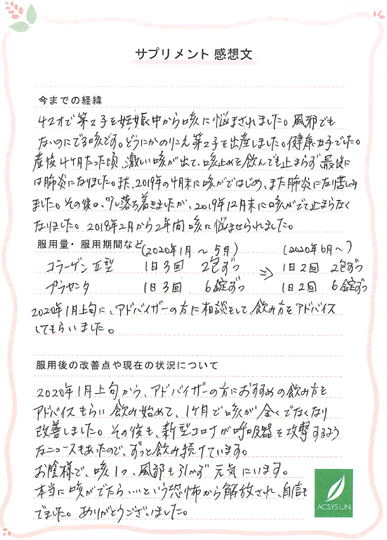 サプリメント 感想文
今までの経緯
42才で第2子を妊娠中から咳に悩まされました。風邪でも
ないのにでる咳です。どうにかのりこえ第2子を出産しました。健康な子でした。
産後4ケ月たった頃、激しい咳が出て、咳止めを飲んでも止まらず最後に
は肺炎になりました。又、2019年の4月末に咳がではじめ、また肺炎になり苦しみ
ました。その後は、少し落ち着きましたが、2019年12月末に咳がでて止まらなく
なりました。2018年2月から2年間咳に悩ませられました。
服用量・服用期間など (2020年1月 〜 5月) (2020年6月〜)
コラーゲンⅡ型 1日3回 2包ずつ ⇒ 1日2回 2包ずつ
プラセンタ 1日3回 6錠ずつ 1日2回 6錠ずつ
2020年1月上旬に、アドバイザーの方に相談をして飲み方をアドバイス
してもらいました。
服用後の改善点や現在の状況について
2020年1月上旬から、アドバイザーの方におすすめの飲み方を
アドバイスもらい飲み始めて、1ケ月で咳が全くでなくなり
改善しました。その後も、新型コロナが呼吸器を攻撃するよう
なニュースもあったので、ずっと飲み続けています。
お陰様で、咳1つ、風邪もひかず元気にいます。
本当に咳がでたら…という恐怖から解放され、自信も
でました。ありがとうございました。
ACSYSUN